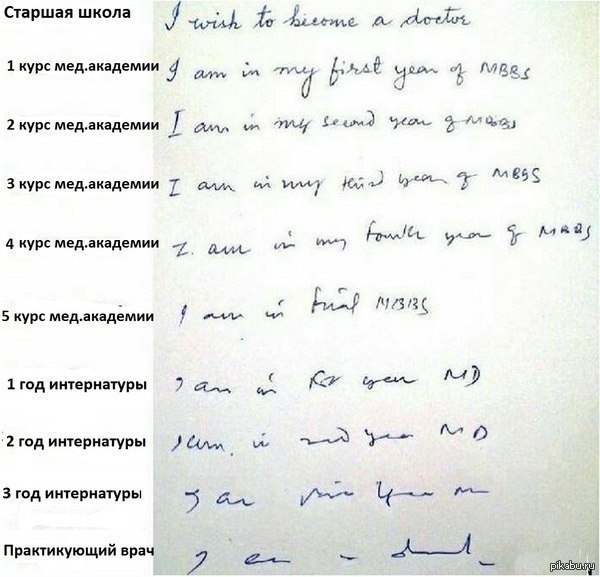 Старшая школа I wish to become a doctor
1 курс мед.академии I am in my first year of MBBS
2 курс мед.академии I am in my second year of MBBS
3 курс мед.академии I am in my third year of MBBS
4 курс мед.академии I am in my fourth year of MBBS
5 курс мед.академии I am in final MBBS
1 год интернатуры I am in 1st year MD
2 год интернатуры I am in 2nd year MD
3 год интернатуры I am year
Практикующий врач I am
pikabu.ru